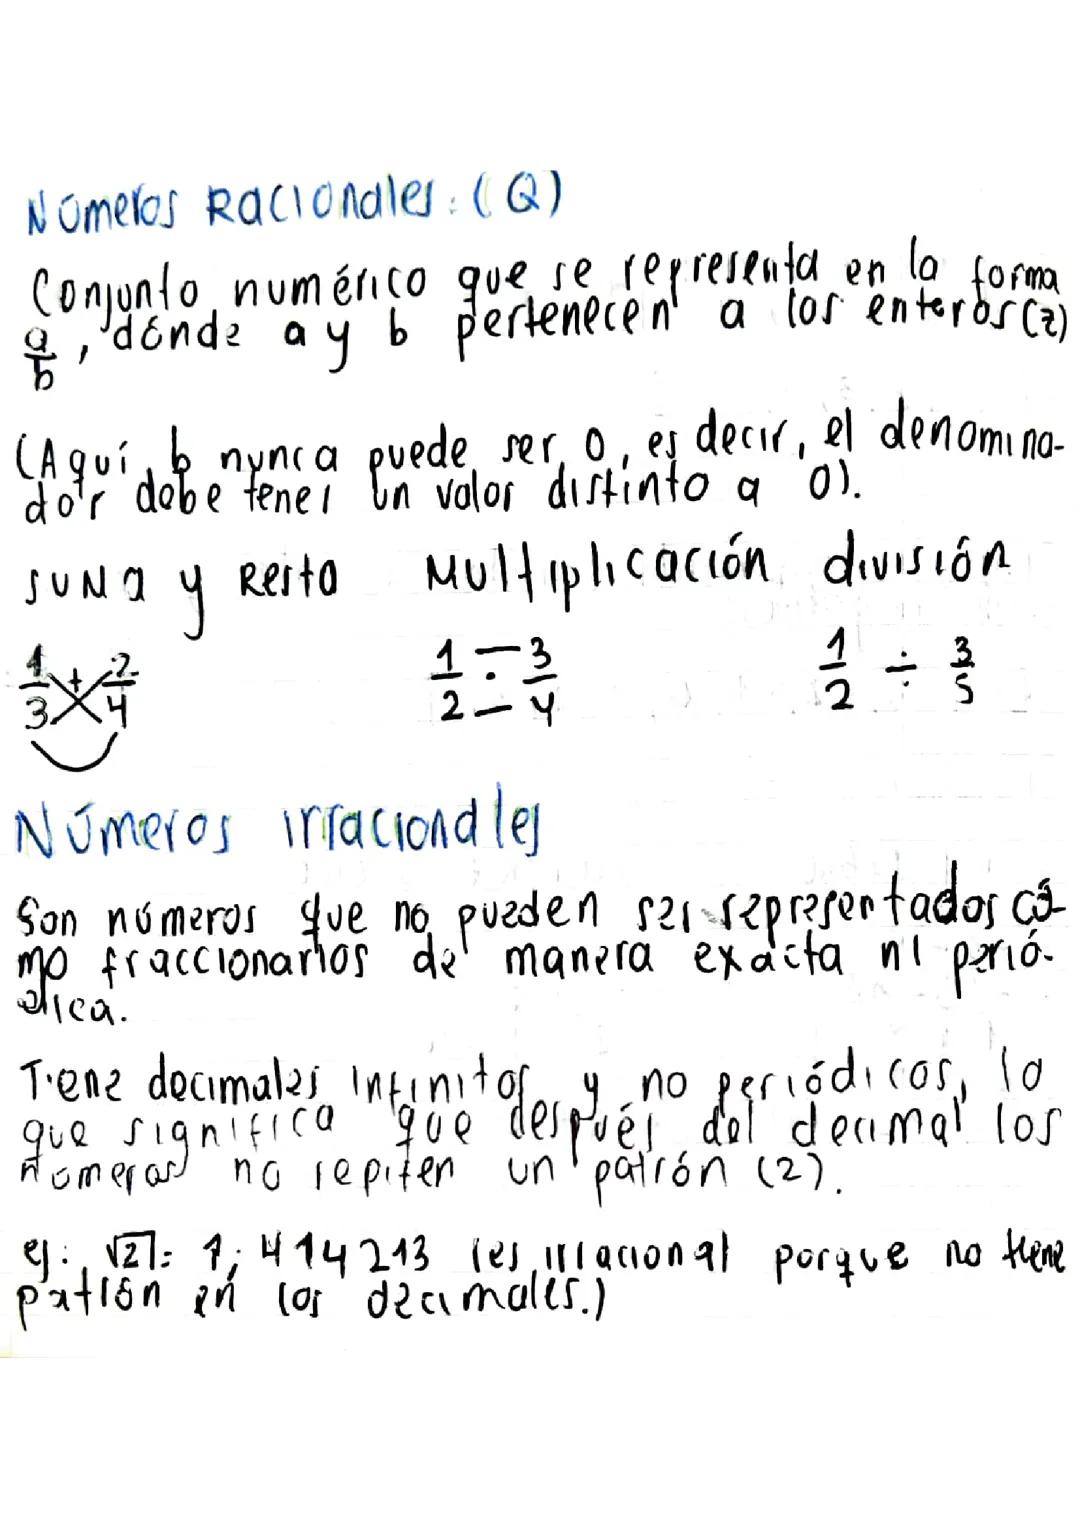 Números Racionales: (Q)
Conjunto numérico que se representa en la forma
a/b, donde a y b pertenecen a los enteros (z)
(Aquí b nunca puede ser 0, es decir, el denomina-
dor debe tener un valor distinto a 0).
suma y Resta Multiplicación división
1/3 + 2/4 1/2 · 3/4 1/2 ÷ 3/5
Números irracionales
Son números que no pueden ser representados co-
mo fraccionarios de manera exacta ni perió-
dica.
Tiene decimales infinitos y no periódicos, lo
que significa que después del decimal los
números no repiten un patrón (2).
ej: √2: 1,414213 (es irracional porque no tiene
patrón en los decimales.)